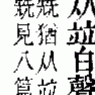 从竝白聲
兟猶从竝
兟見八篇